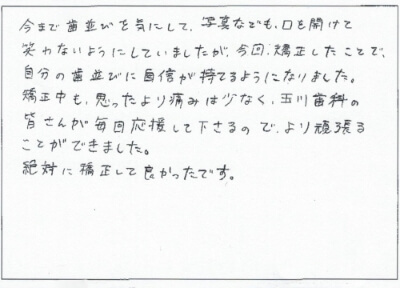 今まで歯並びを気にして、写真などでも、口を開けて
笑わないようにしていましたが、今回、矯正したことで、
自分の歯並びに自信が持てるようになりました。
矯正中も、思ったより痛みは少なく、玉川歯科の
皆さんが毎回応援して下さるので、より頑張る
ことができました。
絶対に矯正して良かったです。